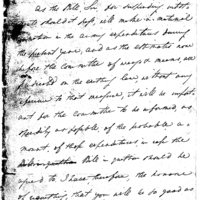 As the Bill, Sir, for suspending
should pass, will make a material
in the army expenditures during
the present year, and as the estimates now
before the committee of ways & means, are
on the existing law, without any
reference to that measure, it will be important
for the committee to be informed, as
speedily as possible, of the probable a-
mount, of those expenditures, in case the
Bill in question should be
agreed to. I have therefore, the honor
of requesting, that you will be so good as